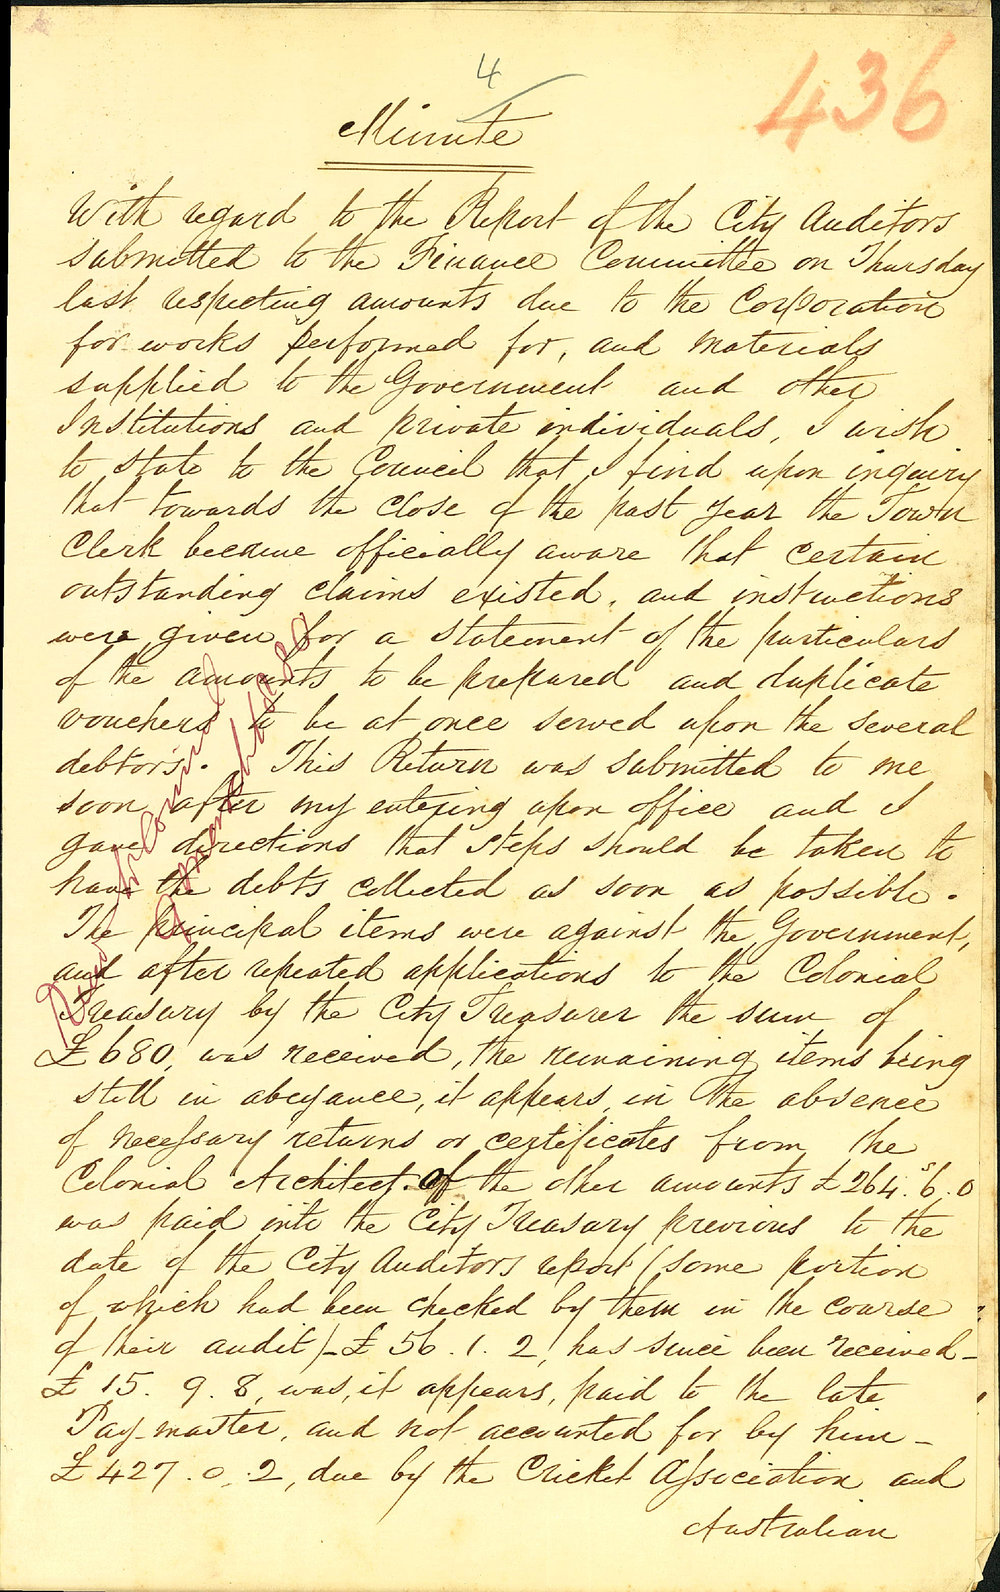 4
436
Minute
With regard to the Report of the City Auditors
submitted to the Finance Committee on Thursday
last respecting amounts due to the Corporation
for works performed for, and materials
supplied to the Government and other
Institutions and private individuals, I wish
to state to the Council that I find upon inquiry
that towards the close of the past year the Town
Clerk became officially aware that certain
outstanding claims existed, and instructions
were given for a statement of the particulars
of the amounts to be prepared and duplicate
vouchers to be at once served upon the several
debtors. This Return was submitted to me
soon after my entering upon office and I
gave directions that steps should be taken to
have the debts collected as soon as possible.
The principal items were against the Government,
and after repeated applications to the Colonial
Treasury by the City Treasurer the sum of
£680, was received, the remaining items being
still in abeyance, it appears, in the absence
of necessary returns or certificates from the
Colonial Architect. Of the other amounts £264.s6.0
was paid into the City Treasury previous to the
date of the City Auditors report (some portion
of which had been checked by them in the course
of their audit)-£56.1.2, has since been received-
£15.9.8, was, it appears, paid to the late
Pay-master, and not accounted for by him-
£427.0.2, due by the Cricket Association and
Australian